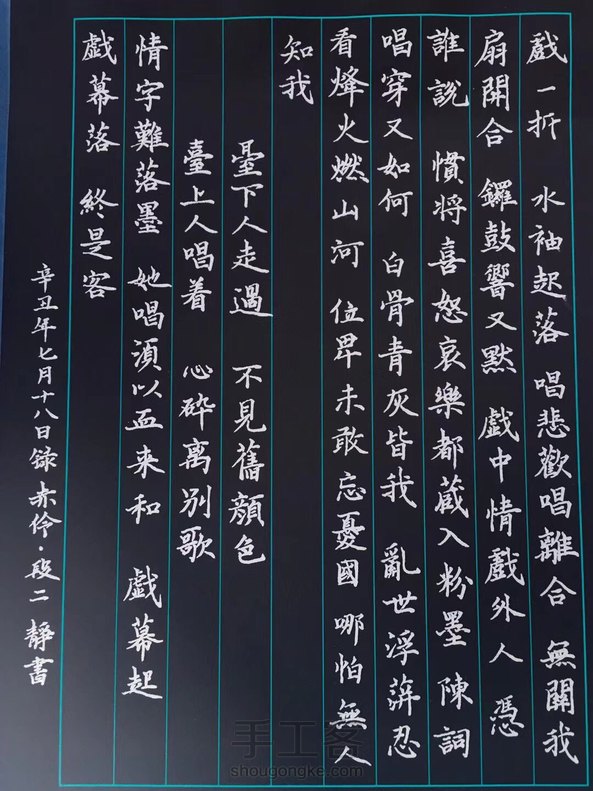 戲一折 水袖起落 唱悲歡唱離合 無關我
扇開合 鑼鼓響又默 戲中情戲外人 憑
誰說 慣將喜怒哀樂都藏入粉墨 陳詞
唱穿又如何 白骨青灰皆我 亂世浮萍忍
看烽火燃山河 位卑未敢忘憂國 哪怕無人
知我
臺下人走過 不見舊顏色
臺上人唱着 心碎离别歌
情字難落墨 她唱須以血来和 戲幕起
戲幕落 終是客
辛丑年七月十八日録赤伶·段二 靜書
手工客
shougongke.com